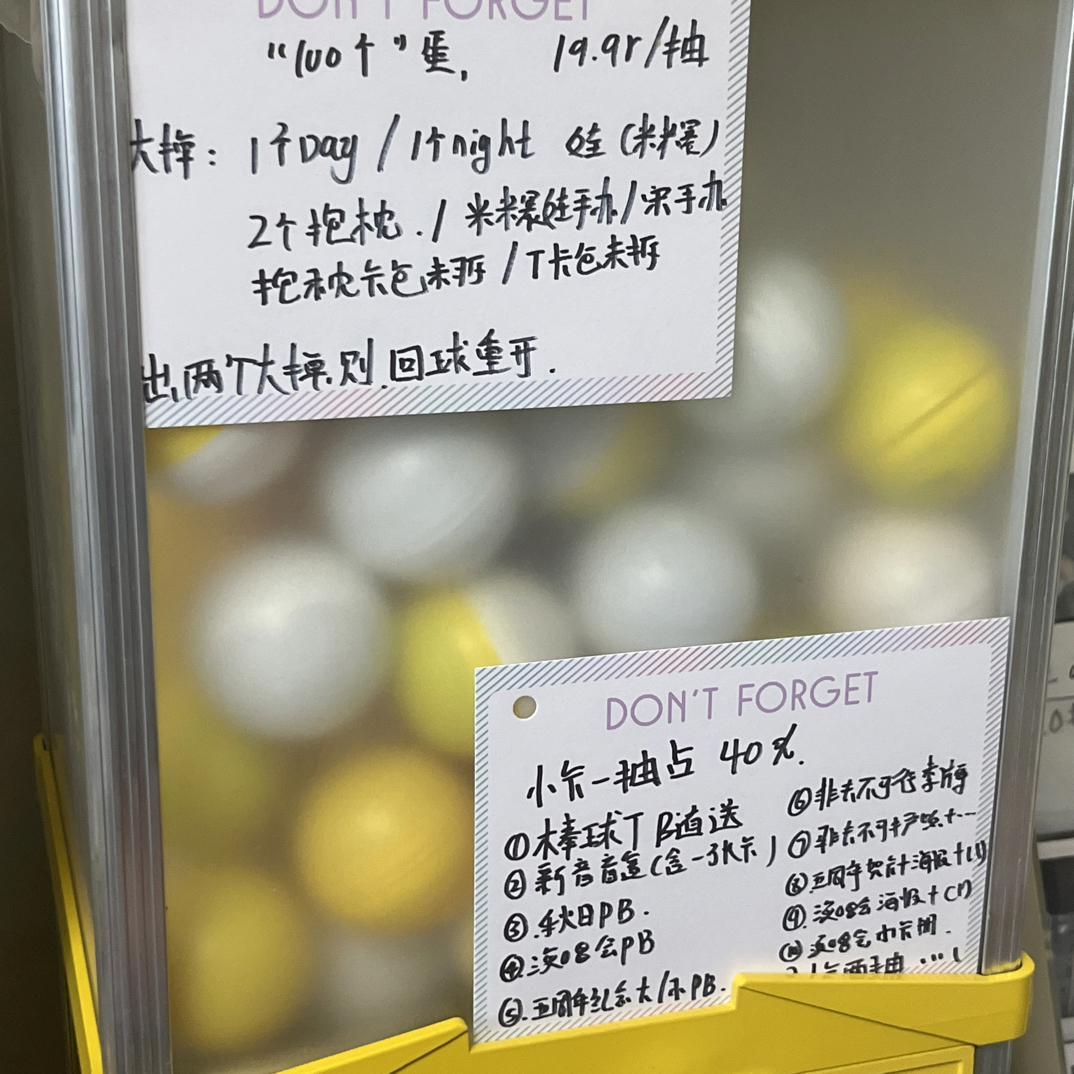 DON'T FORGET
"100个"蛋, 19.9r/抽
大掉: 1个Day / 1个night 娃 (米米)
2个抱枕 . / 米米娃手办 / 宋手办
抱枕卡包未拆 / T卡包未拆
出两个大掉则回球重开.
DON'T FORGET
小卡一抽占 40%.
① 棒球T B随送
② 新音音盒(含一张卡)
③. 秋日PB.
④. 演唱会PB
⑤. 五周年纪念大/小PB.
⑥ 非去不可
⑦ 非去不可
⑧ 五周年贺计海报+
⑨. 演唱会海报+
⑩ 演唱会小卡